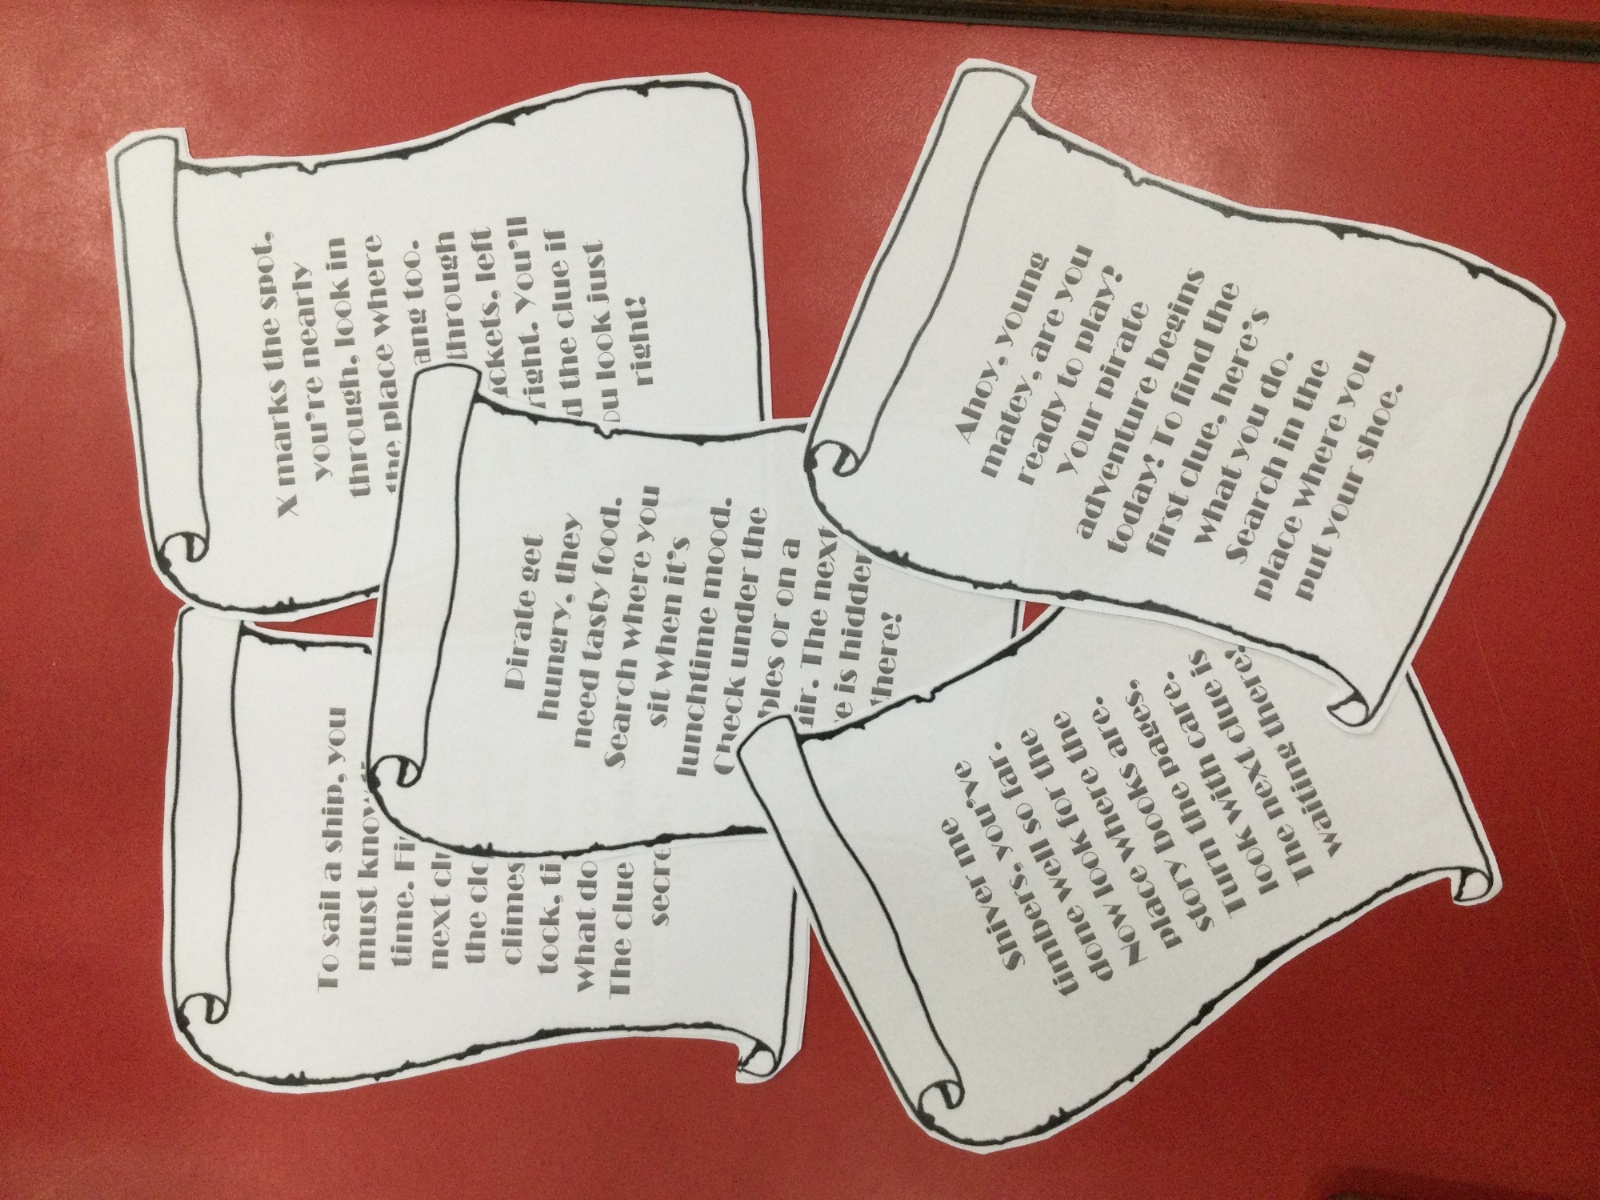 X marks the spot,
you're nearly
through, look in
the place where
ang too.
through
ckets, left
right. you'll
d the clue if
ou look just
right!
To sail a ship, you
must know
time. Fi
next cl
the clo
climes
tock, ti
what do
The clue
secre
Pirate get
hungry, they
need tasty food.
Search where you
sit when it's
lunchtime mood.
Check under the
bles or on a
air. The next
e is hidden
there!
Ahoy, young
matey, are you
ready to play?
your pirate
adventure begins
today! To find the
first clue, here's
what you do.
Search in the
place where you
put your shoe.
Shiver me
timbers, you've
done well so far.
Now look for the
place where the
story books are.
Turn the pages,
look with care.
The next clue is
waiting there!